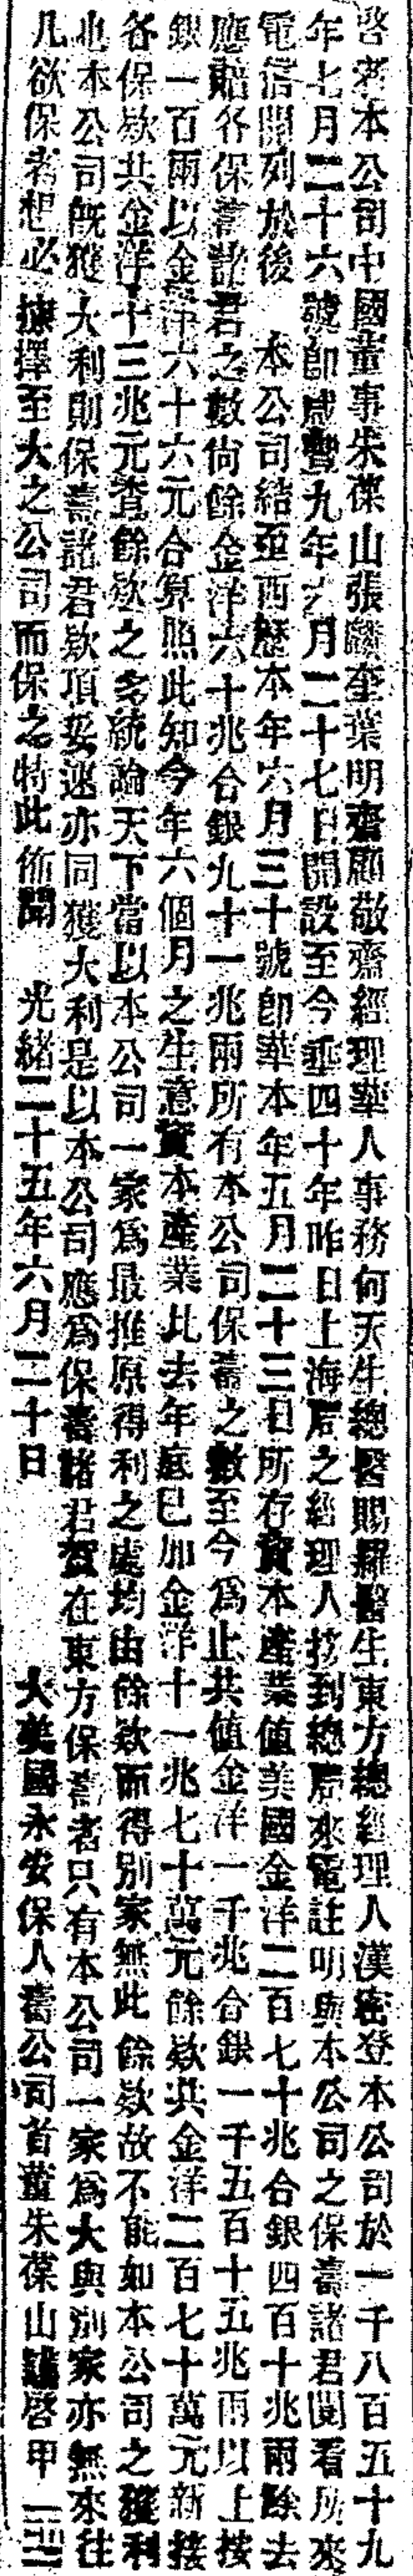 啓者本公司中國董事朱葆山張麟奎葉明齋顧敬齋經理華人事務何天生總醫賜羅醫生東方總經理人漢密登本公司於一千八百五十九
年七月二十六號即咸豐九年六月二十七日開設至今垂四十年昨日上海居之經理人接到總居來電註明與本公司之保壽諸君閱看所來
電信開列於後　本公司結至西歷本年六月三十號即華本年五月二十三日所存資本產業值美國金洋二百七十兆合銀四百十兆兩除去
應賠各保壽諸君之數尙餘金洋六十兆合銀九十一兆兩所有本公司保壽之數至今爲止共值金洋一千兆合銀一千五百十五兆兩以上按
銀一百兩以金洋六十六元合算照此知今年六個月之生意資本產業比去年底已加金洋十一兆七十萬元餘欵共金洋二百七十萬元新接
各保欵共金洋十三兆元查餘欵之多統論天下當以本公司一家爲最推原得利之處均由餘欵而得別家無此餘欵故不能如本公司之獲利
也本公司旣獲大利則保壽諸君欵項妥速亦同獲大利是以本公司應爲保壽諸君賀在東方保壽者只有本公司一家爲大與別家亦無來往
凡欲保者想必揀擇至大之公司而保之特此佈聞　光緒二十五年六月二十日　大美國永安保人壽公司首董朱葆山謹啓甲